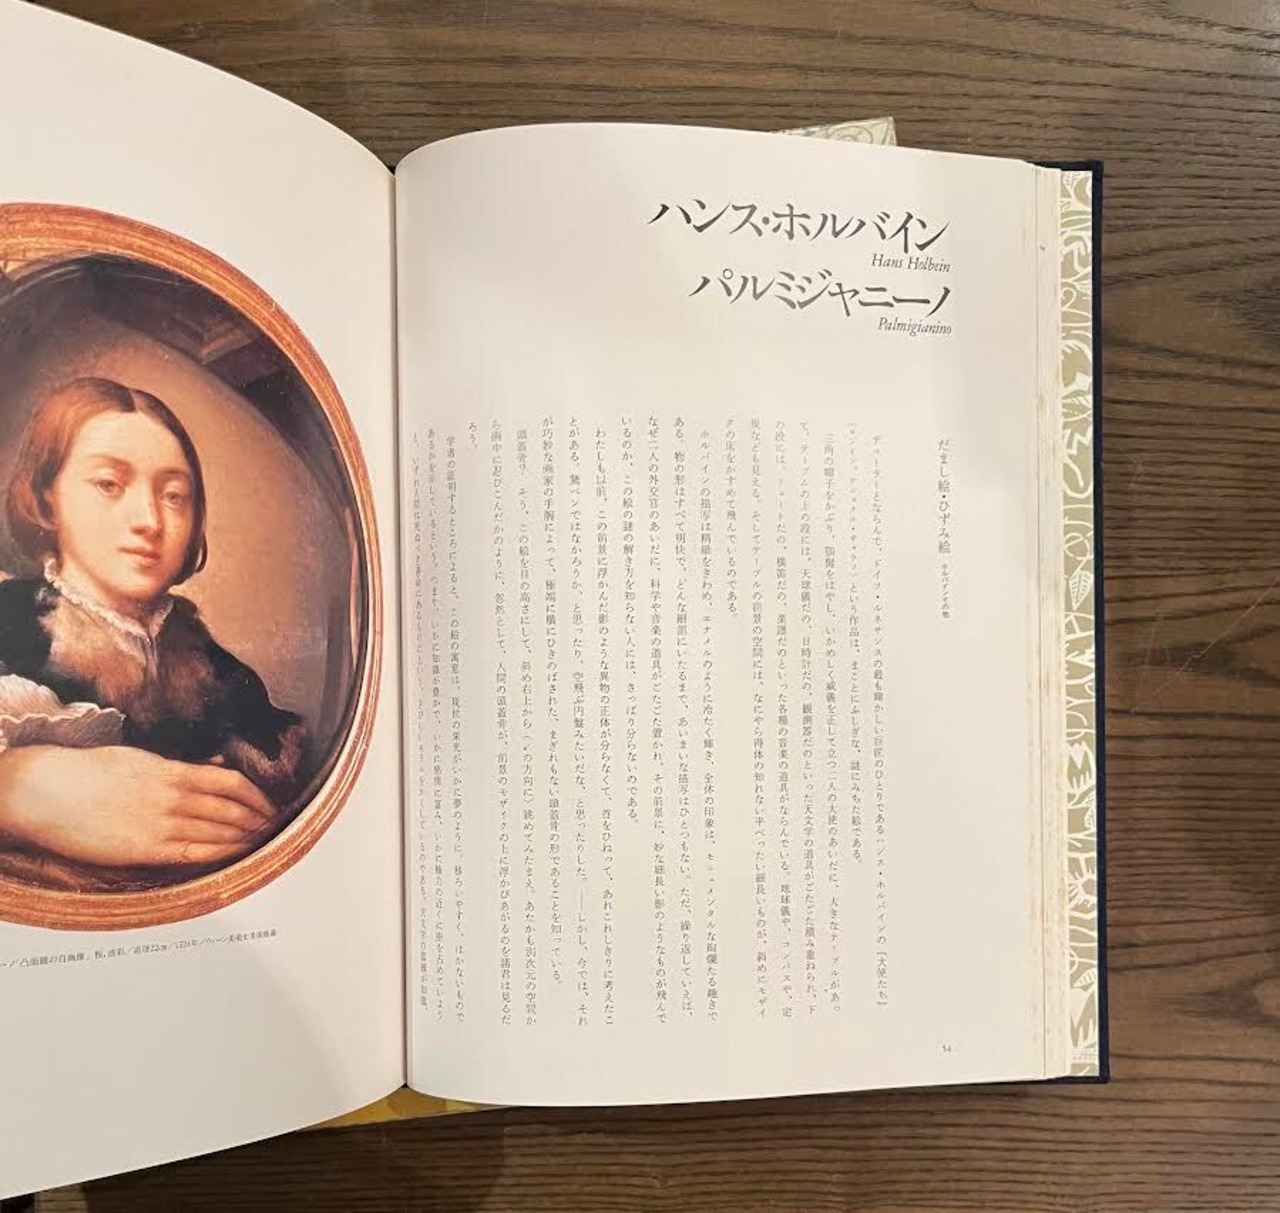 ハンス・ホルバイン
Hans Holbein
パルミジャニーノ
Palmigianino
だまし絵・ひずみ絵 ホルバインその他
デューラーとならんで、ドイツ・ルネサンスの最も輝かしい巨匠のひとりであるハンス・ホルバインの『大使たち』
(ロンドン、ナショナル・ギャラリー)という作品は、まことにふしぎな、謎にみちた絵である。
三角の帽子をかぶり、顎鬚をはやし、いかめしく威儀を正して立つ二人の大使のあいだに、大きなテーブルがあっ
て、テーブルの上の段には、天球儀だの、日時計だの、観測器だのといった天文学の道具がごたごた積み重ねられ、下
の段には、リュートだの、横笛だの、楽譜だのといった各種の音楽の道具がならんでいる。地球儀や、コンパスや、定
規なども見える。そしてテーブルの前景の空間には、なにやら得体の知れない平べったい細長いものが、斜めにモザイ
クの床をかすめて飛んでいるのである。
ホルバインの描写は精緻をきわめ、エナメルのように冷たく輝き、全体の印象は、モニュメンタルな絢爛たる趣きで
ある。物の形はすべて明快で、どんな細部にいたるまで、あいまいな描写はひとつもない。ただ、繰り返していえば、
なぜ二人の外交官のあいだに、科学や音楽の道具がごたごた置かれ、その前景に、妙な細長い影のようなものが飛んで
いるのか、この絵の謎の解き方を知らない人には、さっぱり分らないのである。
わたしも以前、この前景に浮かんだ影のような異物の正体が分らなくて、首をひねって、あれこれしきりに考えたこ
とがある。鵞ペンではなかろうか、と思ったり、空飛ぶ円盤みたいだな、と思ったりした。――しかし、今では、それ
が巧妙な画家の手腕によって、極端に横にひきのばされた、まぎれもない頭蓋骨の形であることを知っている。
頭蓋骨? そう、この絵を目の高さにして、斜め右上から(↙の方向に)眺めてみたまえ。あたかも別次元の空間か
ら画中に忍びこんだかのように、忽然として、人間の頭蓋骨が、前景のモザイクの上に浮かびあがるのを諸君は見るだ
ろう。
学者の証明するところによると、この絵の寓意は、現世の栄光がいかに夢のように、移ろいやすく、はかないもので
あるかを示しているという。つまり、いかに知識が豊かで、いかに感情に富み、いかに権力の近くに座を占めていよう
と、いずれ人間は死ぬべき運命にあるものだという、きびしいモラルをかくしているのである。天文学の器械が知識、
54
ーノ「凸面鏡の自画像」板、油彩/直径22cm/1524年/ウィーン美術史美術館蔵